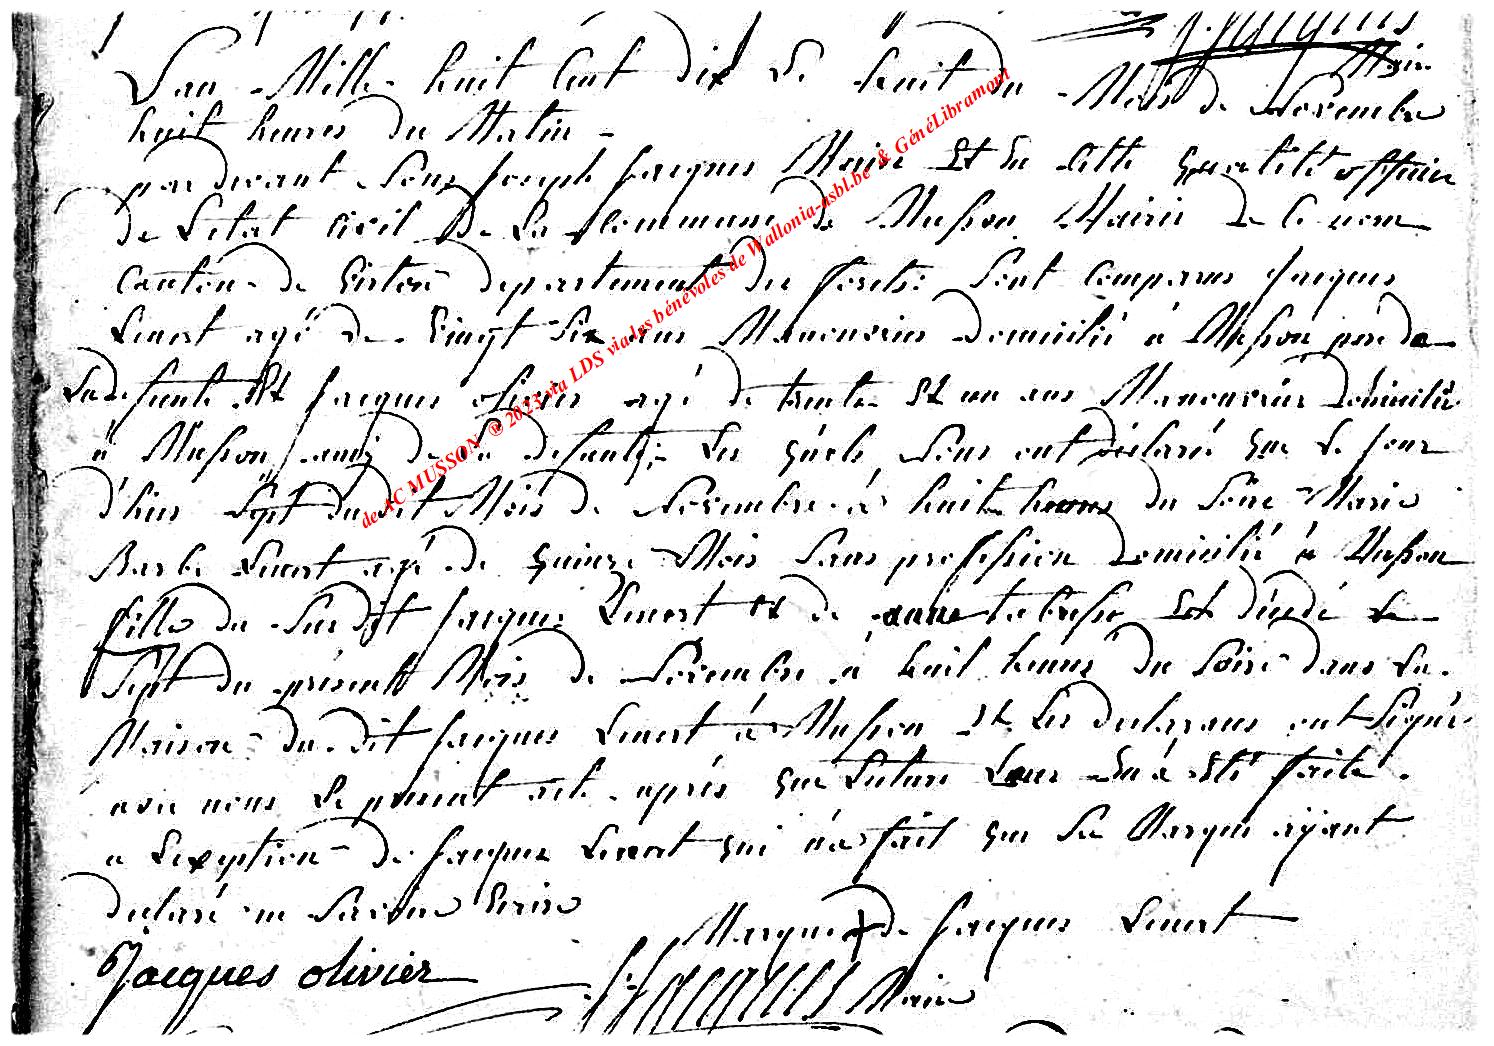 J. Jacques
Maire
L'an Mille huit Cent dix Le huit du Mois de Novembre
huit heures du Matin -
par devant Nous Joseph Jacques Maire Et En Cette qualité officier
de L'etat Civil De La Commune de Musson Mairie de Ce nom
Canton de Virton departement des forêts: Sont Comparus Jacques
agé de Vingt Six ans Manouvrier domicilié à Musson pere de
La defunte Et Jacques olivier agé de trente Et un ans Manouvrier domicilié
à Musson ami de La defunte; Les quels Nous ont déclaré que Le jour
d'hier Sept du dit Mois de Novembre à huit heures du Soire Marie
Barbe agé de quinze Mois Sans profession domicilié à Musson
fille du Sus dit Jacques et de anne Est décédé Le
Sept du présent Mois de Novembre à huit heures du Soire dans La
Maison du dit Jacques à Musson Et Les declarans ont Signé
avec nous Le present acte après que Lecture Leur En a Eté faite
a L'exeption de Jacques qui n'a fait que Sa Marque aÿant
declaré ne Savoire Ecrire
Marque + de Jacques
Jacques olivier
J. J. Jacques Maire
de AC MUSSON ® 2023 via LDS via les bénévoles de Wallonia-asbl.be & GénéLibramont